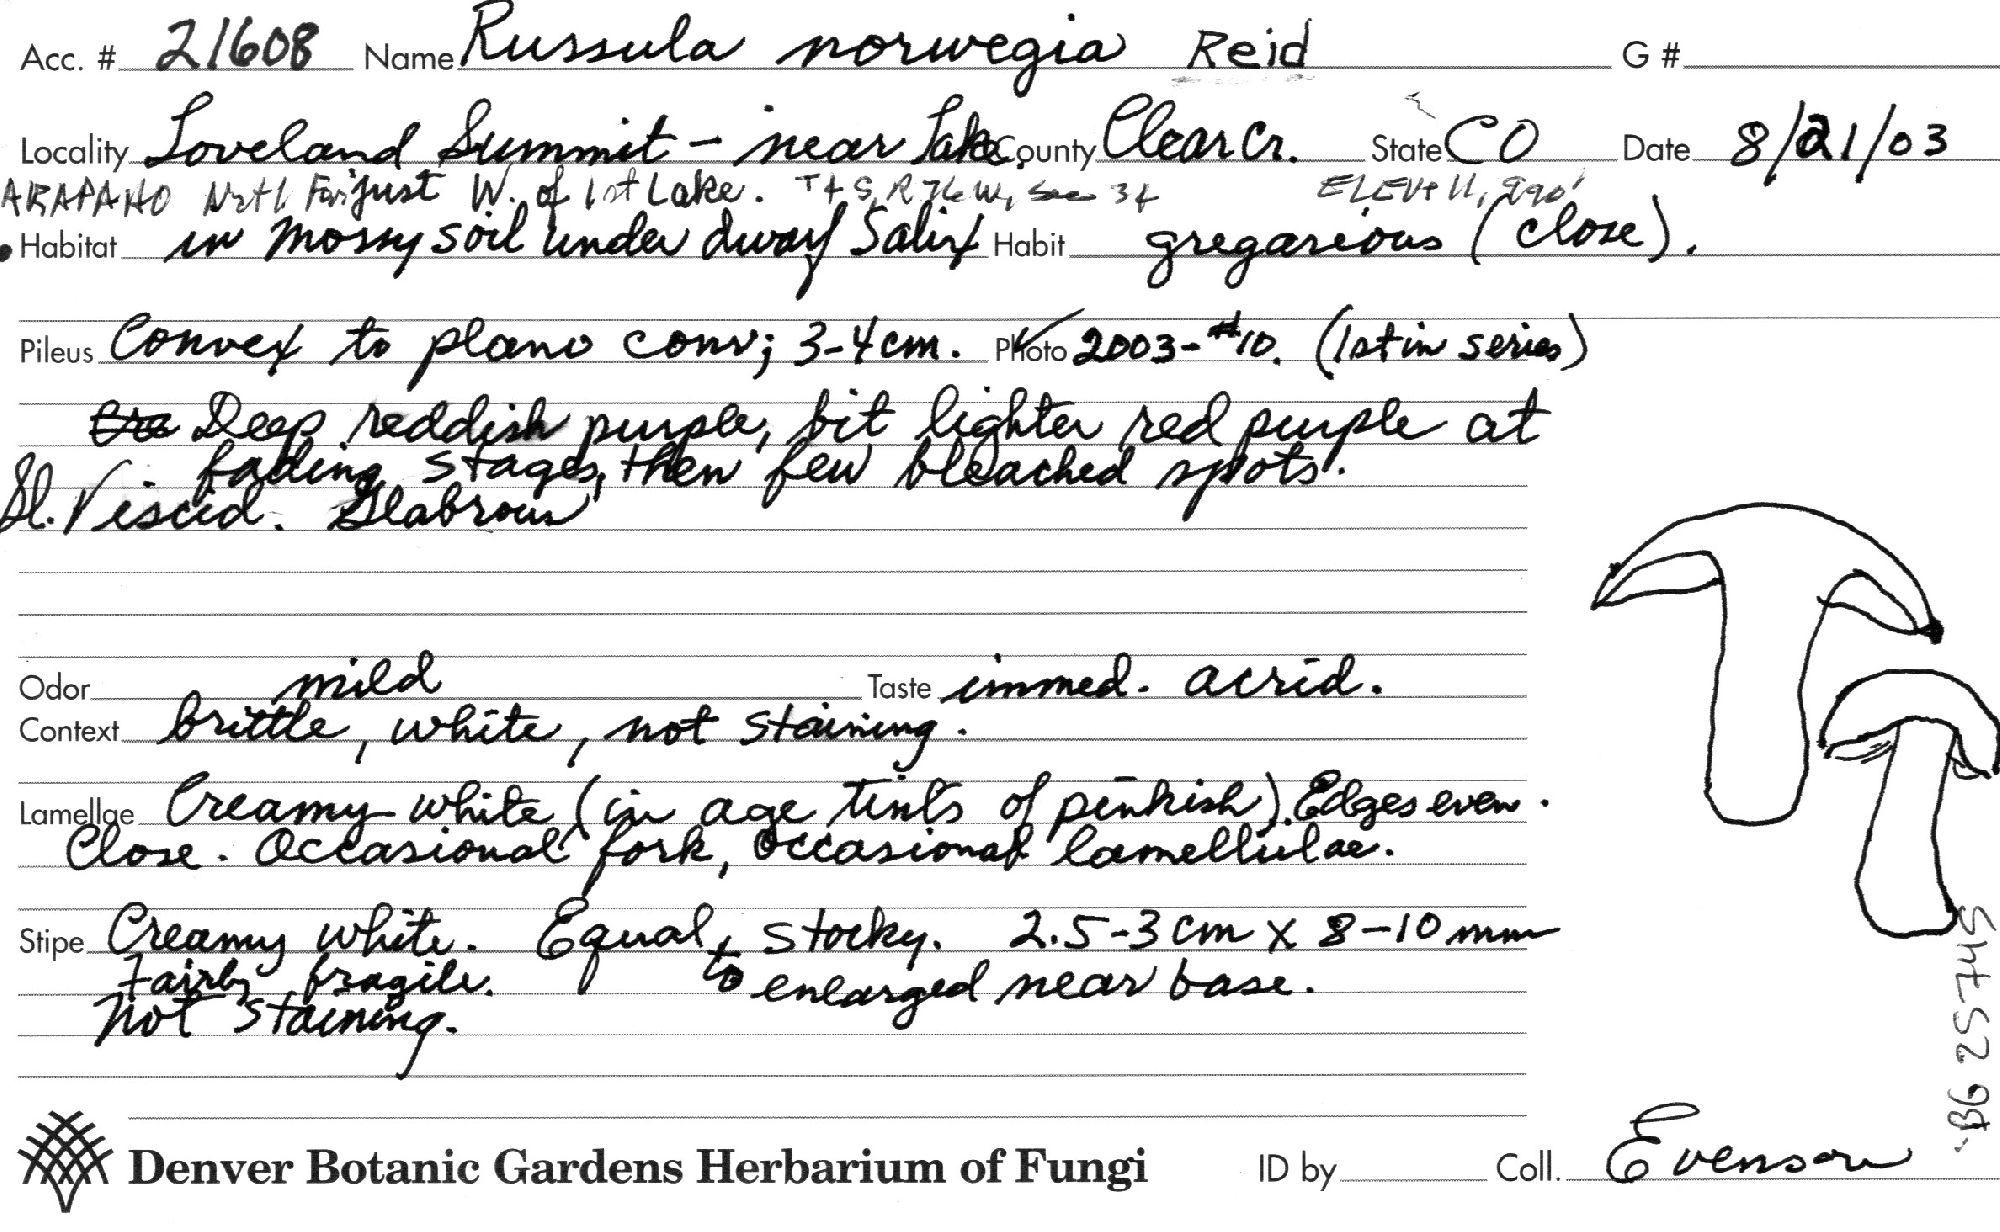 Acc. # 21608 Name Russula norwegia Reid G #
Locality Loveland Summit – near Lake, County Clear Cr. State CO Date 8/21/03
ARAPAHO Nat'l For. just W. of 1st Lake. T4S, R76W, Sec 34 ELEV 11,990'
Habitat in mossy soil under dwarf Salix Habit gregarious (close).
Pileus Convex to plano conv; 3-4 cm. Photo 2003-#10. (1st in series)
Deep reddish purple, bit lighter red purple at
fading stages, then few bleached spots.
Sl. Viscid. Glabrous
Odor mild Taste immed. acrid.
Context brittle, white, not staining.
Lamellae Creamy-white (in age tints of pinkish). Edges even.
Close. Occasional fork, occasional lamellulae.
Stipe Creamy white. Equal, stocky. 2.5-3 cm x 8-10 mm
Fairly fragile. to enlarged near base.
Not staining.
Denver Botanic Gardens Herbarium of Fungi ID by Coll. Evenson